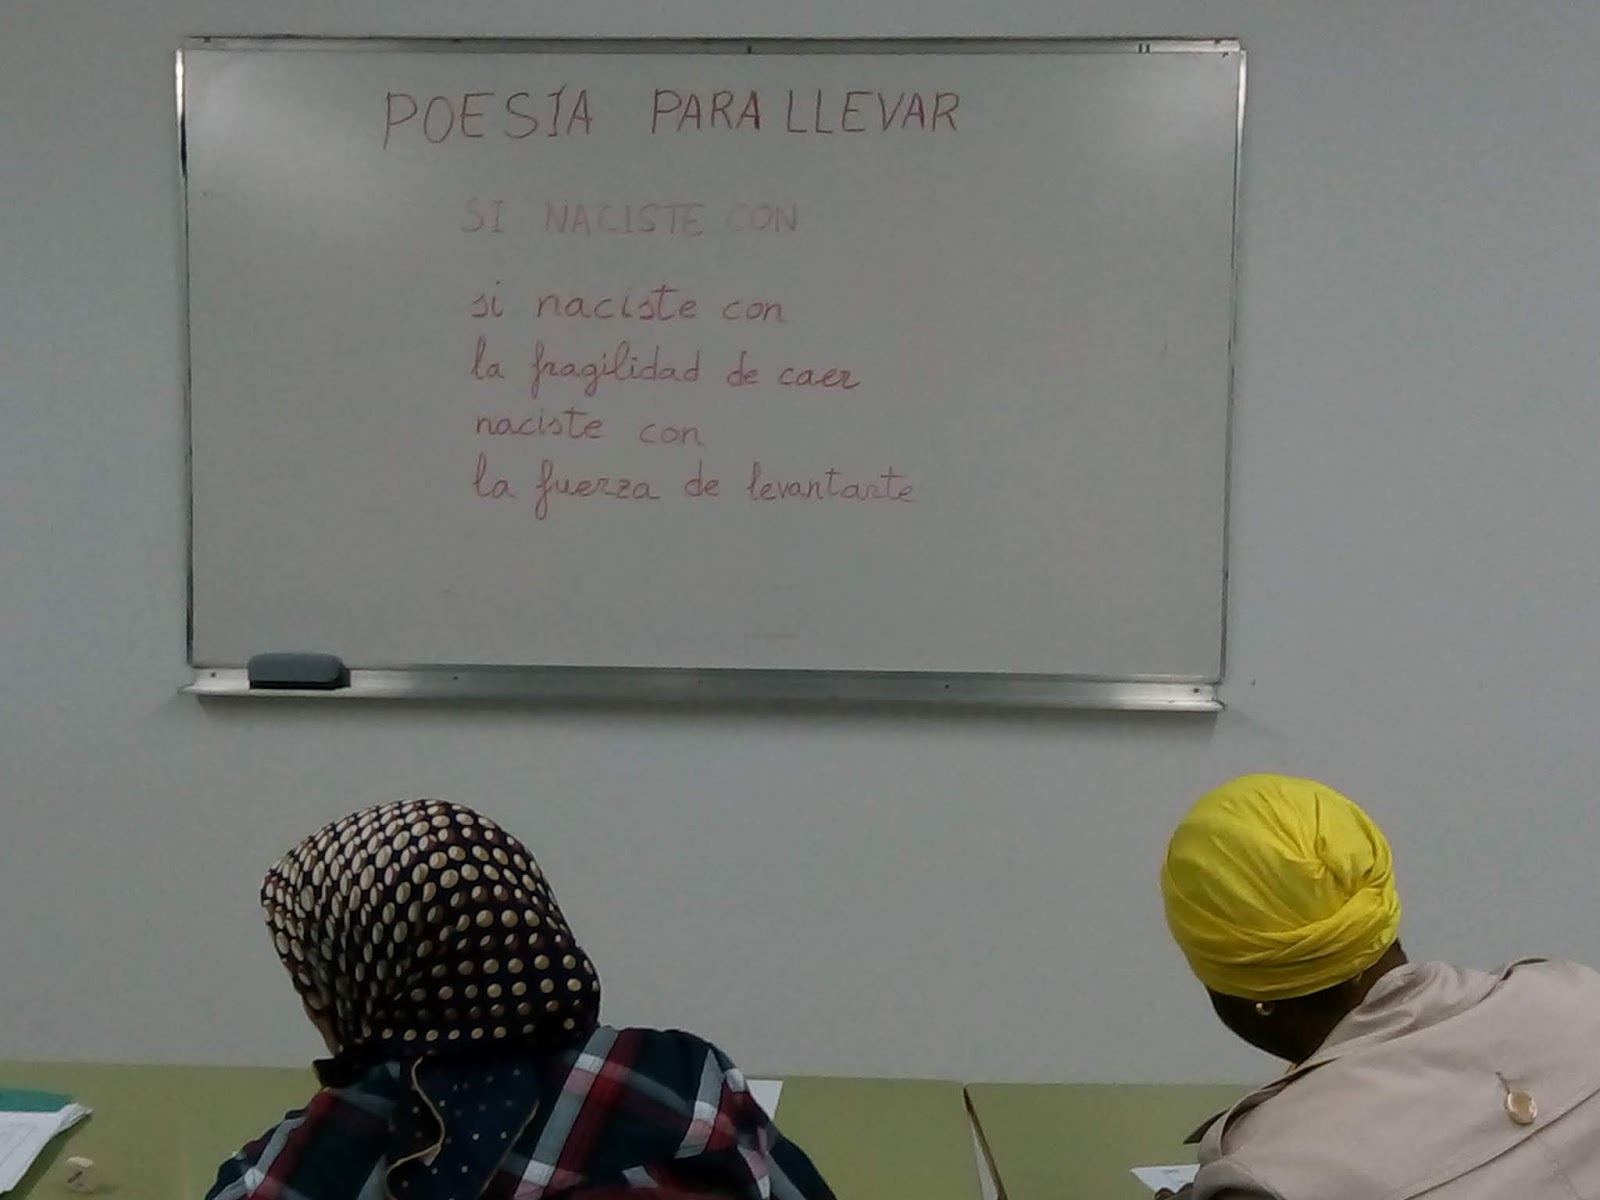 POESÍA PARA LLEVAR
SI NACISTE CON
si naciste con
la fragilidad de caer
naciste con
la fuerza de levantarte